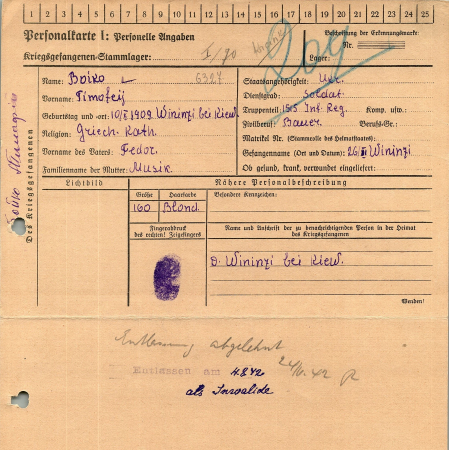 1 2 3 4 5 6 7 8 9 10 11 12 13 14 15 16 17 18 19 20 21 22 23 24 25
Personalkarte I: Personelle Angaben
Kriegsgefangenen-Stammlager:
I/70
Beschriftung der Erkennungsmarke:
Nr.
Lager:
Des Kriegsgefangenen
Name: Boiko
6327
Vorname: Timofeij
Geburtstag und -ort: 10/I 1909 Wininzi bei Kiew
Religion: Griech. Kath.
Vorname des Vaters: Fedor.
Familienname der Mutter: Musik.
Staatsangehörigkeit: Ukr.
Dienstgrad: Soldat.
Truppenteil: 1515 Inf. Reg. Komp. usw.:
Zivilberuf: Bauer. Berufs-Gr.:
Matrikel Nr. (Stammrolle des Heimatstaates):
Gefangennahme (Ort und Datum): Wininzi
Ob gesund, krank, verwundet eingeliefert:
Lichtbild
Nähere Personalbeschreibung
Größe Haarfarbe Besondere Kennzeichen:
160 Blond.
Fingerabdruck des rechten! Zeigefingers
Name und Anschrift der zu benachrichtigenden Person in der Heimat des Kriegsgefangenen
D. Wininzi bei Kiew.
Wenden!
Entlassung abgelehnt
Entlassen am 4.8.42
als Invalide